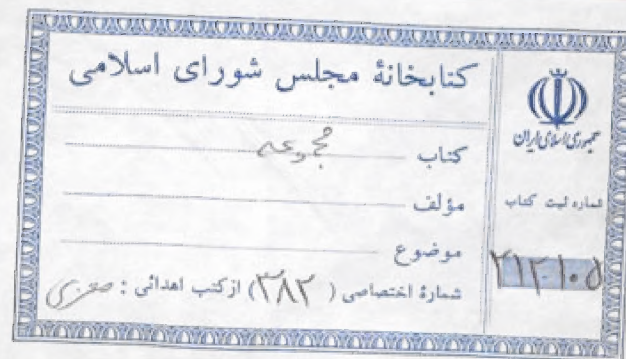 کتابخانهٔ مجلس شورای اسلامی
کتاب مجموعه
مؤلف
موضوع
شمارهٔ اختصاصی ( ۳۸۲ ) از کتب اهدائی :
جمهوری اسلامی ایران
شماره ثبت کتاب